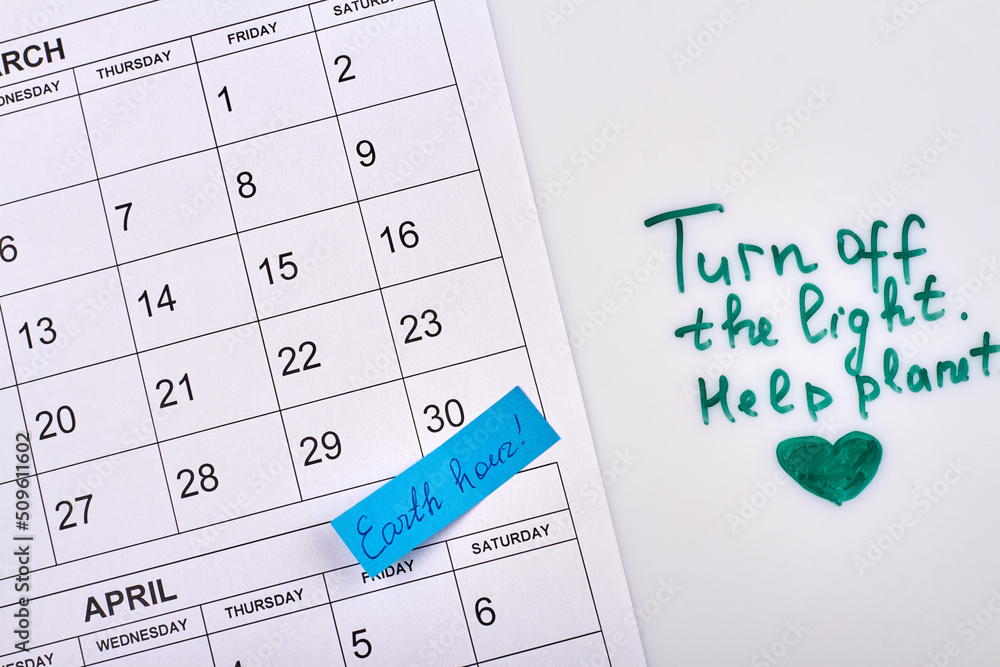 ARCH
NESDAY THURSDAY FRIDAY SATURD
1 2
6 7 8 9
13 14 15 16
20 21 22 23
27 28 29 30
Earth hour!
APRIL
WEDNESDAY THURSDAY FRIDAY SATURDAY
4 5 6
Turn off
the light.
Help planet
Adobe Stock | #509611602